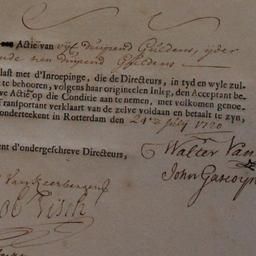 Actie van vijf duijzend Guldens, ijder
een duijzend Guldens
last met d'Inroepinge, die de Directeurs, in tyd en wyle zul-
te behooren, volgens haar origineelen Inleg, den Acceptant be-
ve Actie op die Conditie aan te nemen, met volkomen genoe-
Transportant verklaart van de zelve voldaan en betaalt te zyn,
onderteekent in Rotterdam den 24 July 1720
Walter Van
ent d'ondergeschreve Directeurs,
John Gascoyn
Visch